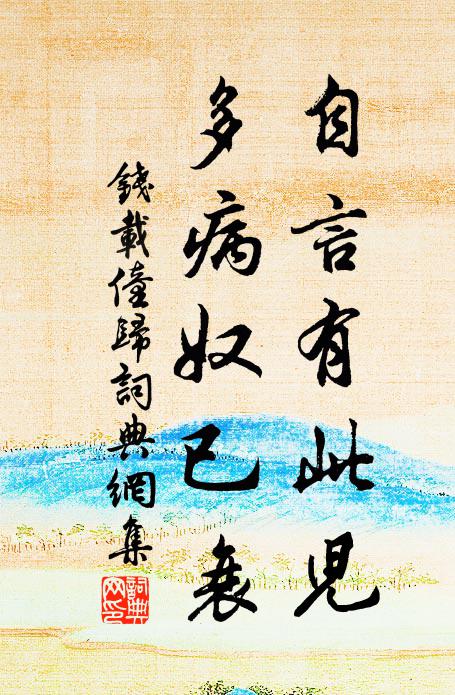 自言有此兒
多病奴已衰
錢載僮歸詞典網集
詞典網印